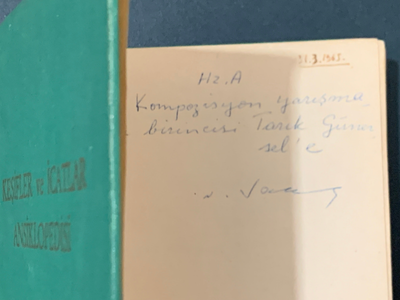 31.3.1963.
Hz. A
Kompozisyon yarışma
birincisi Tarık Günersel'e
KEŞİFLER ve İCATLAR
ANSİKLOPEDİSİ